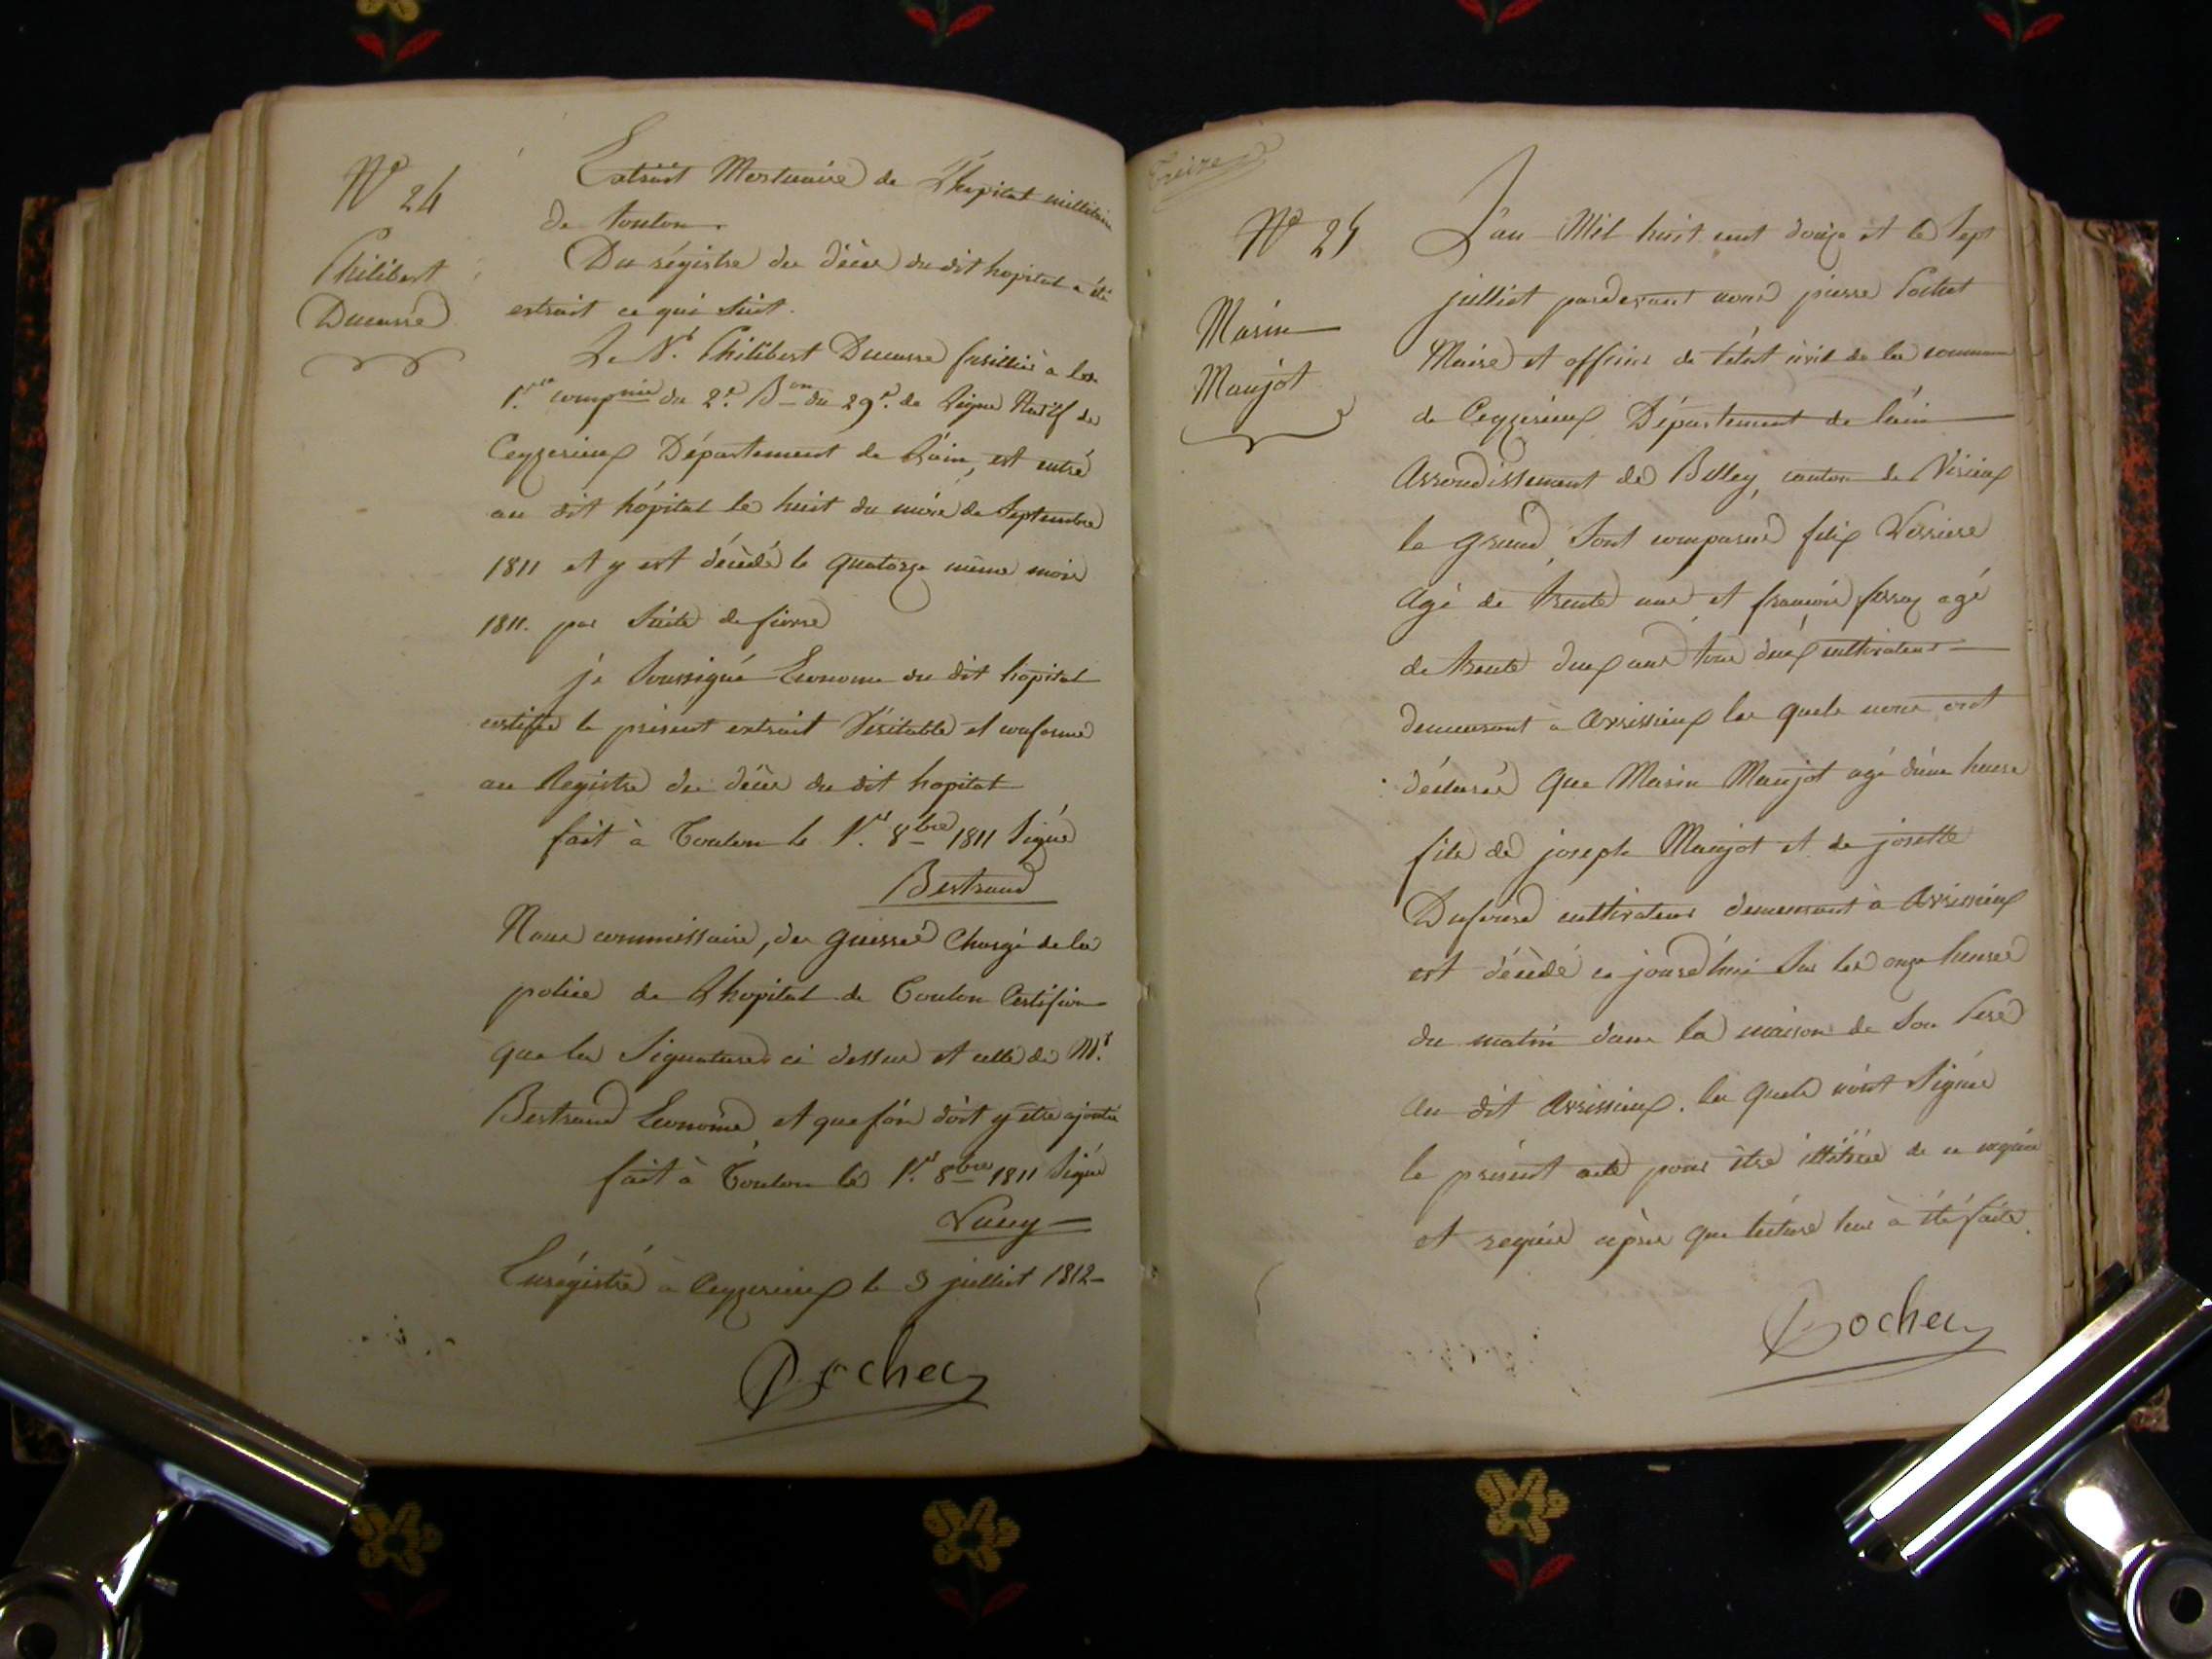 N° 24
Philibert
Ducarre
Extrait Mortuaire de L'hopital millitaire
de toulon.
Du régistre de décès du dit hopital a été
extrait ce qui suit.
Le Né. Philibert Ducarre fusillié à la
1.re compnie du 2.e Bon du 29.e de Ligne Natif de
Ceyzerieux Département de Lain, est entré
au dit hôpital le huit du mois de Septembre
1811 et y est décédé le quatorze même mois
1811. par Suite de fievre
je Soussigné Econome du dit hopital
certifie le présent extrait Véritable et conforme
au Registre de décès du dit hopital
fait à Toulon le 1.er 8bre 1811 Signé
Bertrand
Nous commissaire, des guerres Chargé de la
police de L'hopital de Toulon Certifions
que la Signature ci dessus et celle de Mr.
Bertrand Econome, et que foi doit y être ajoutée
fait à Toulon le 1.er 8bre 1811 Signé
Enrégistré à Ceyzerieux le 3 julliet 1812
Pochet
Treize
N° 25
Marin
Maujot
L'an Mil huit cent douze et le Sept
julliet pardevant nous pierre Pochet
Maire et officier de l'état civil de la commune
de Ceyzerieux Département de lain
Arrondissement de Belley, canton de Virieux
le grand, Sont comparus felix Verriere
agé de trente ans et francois ferraz agé
de trente deux ans tous deux cultivateurs
demeurant à Avrissieux les quels nous ont
déclarés que Marin Maujot agé d'une heure
fils de joseph Maujot et de josette
Dufour cultivateurs demeurant à Avrissieux
est décédé ce jourd'hui Sur les onze heures
du matin dans la maison de Son Pere
au dit Avrissieux. les quels n'ont Signés
le présent acte pour être illitérés de ce enquis
et requis après que lecture leur à été faite.
Pochet